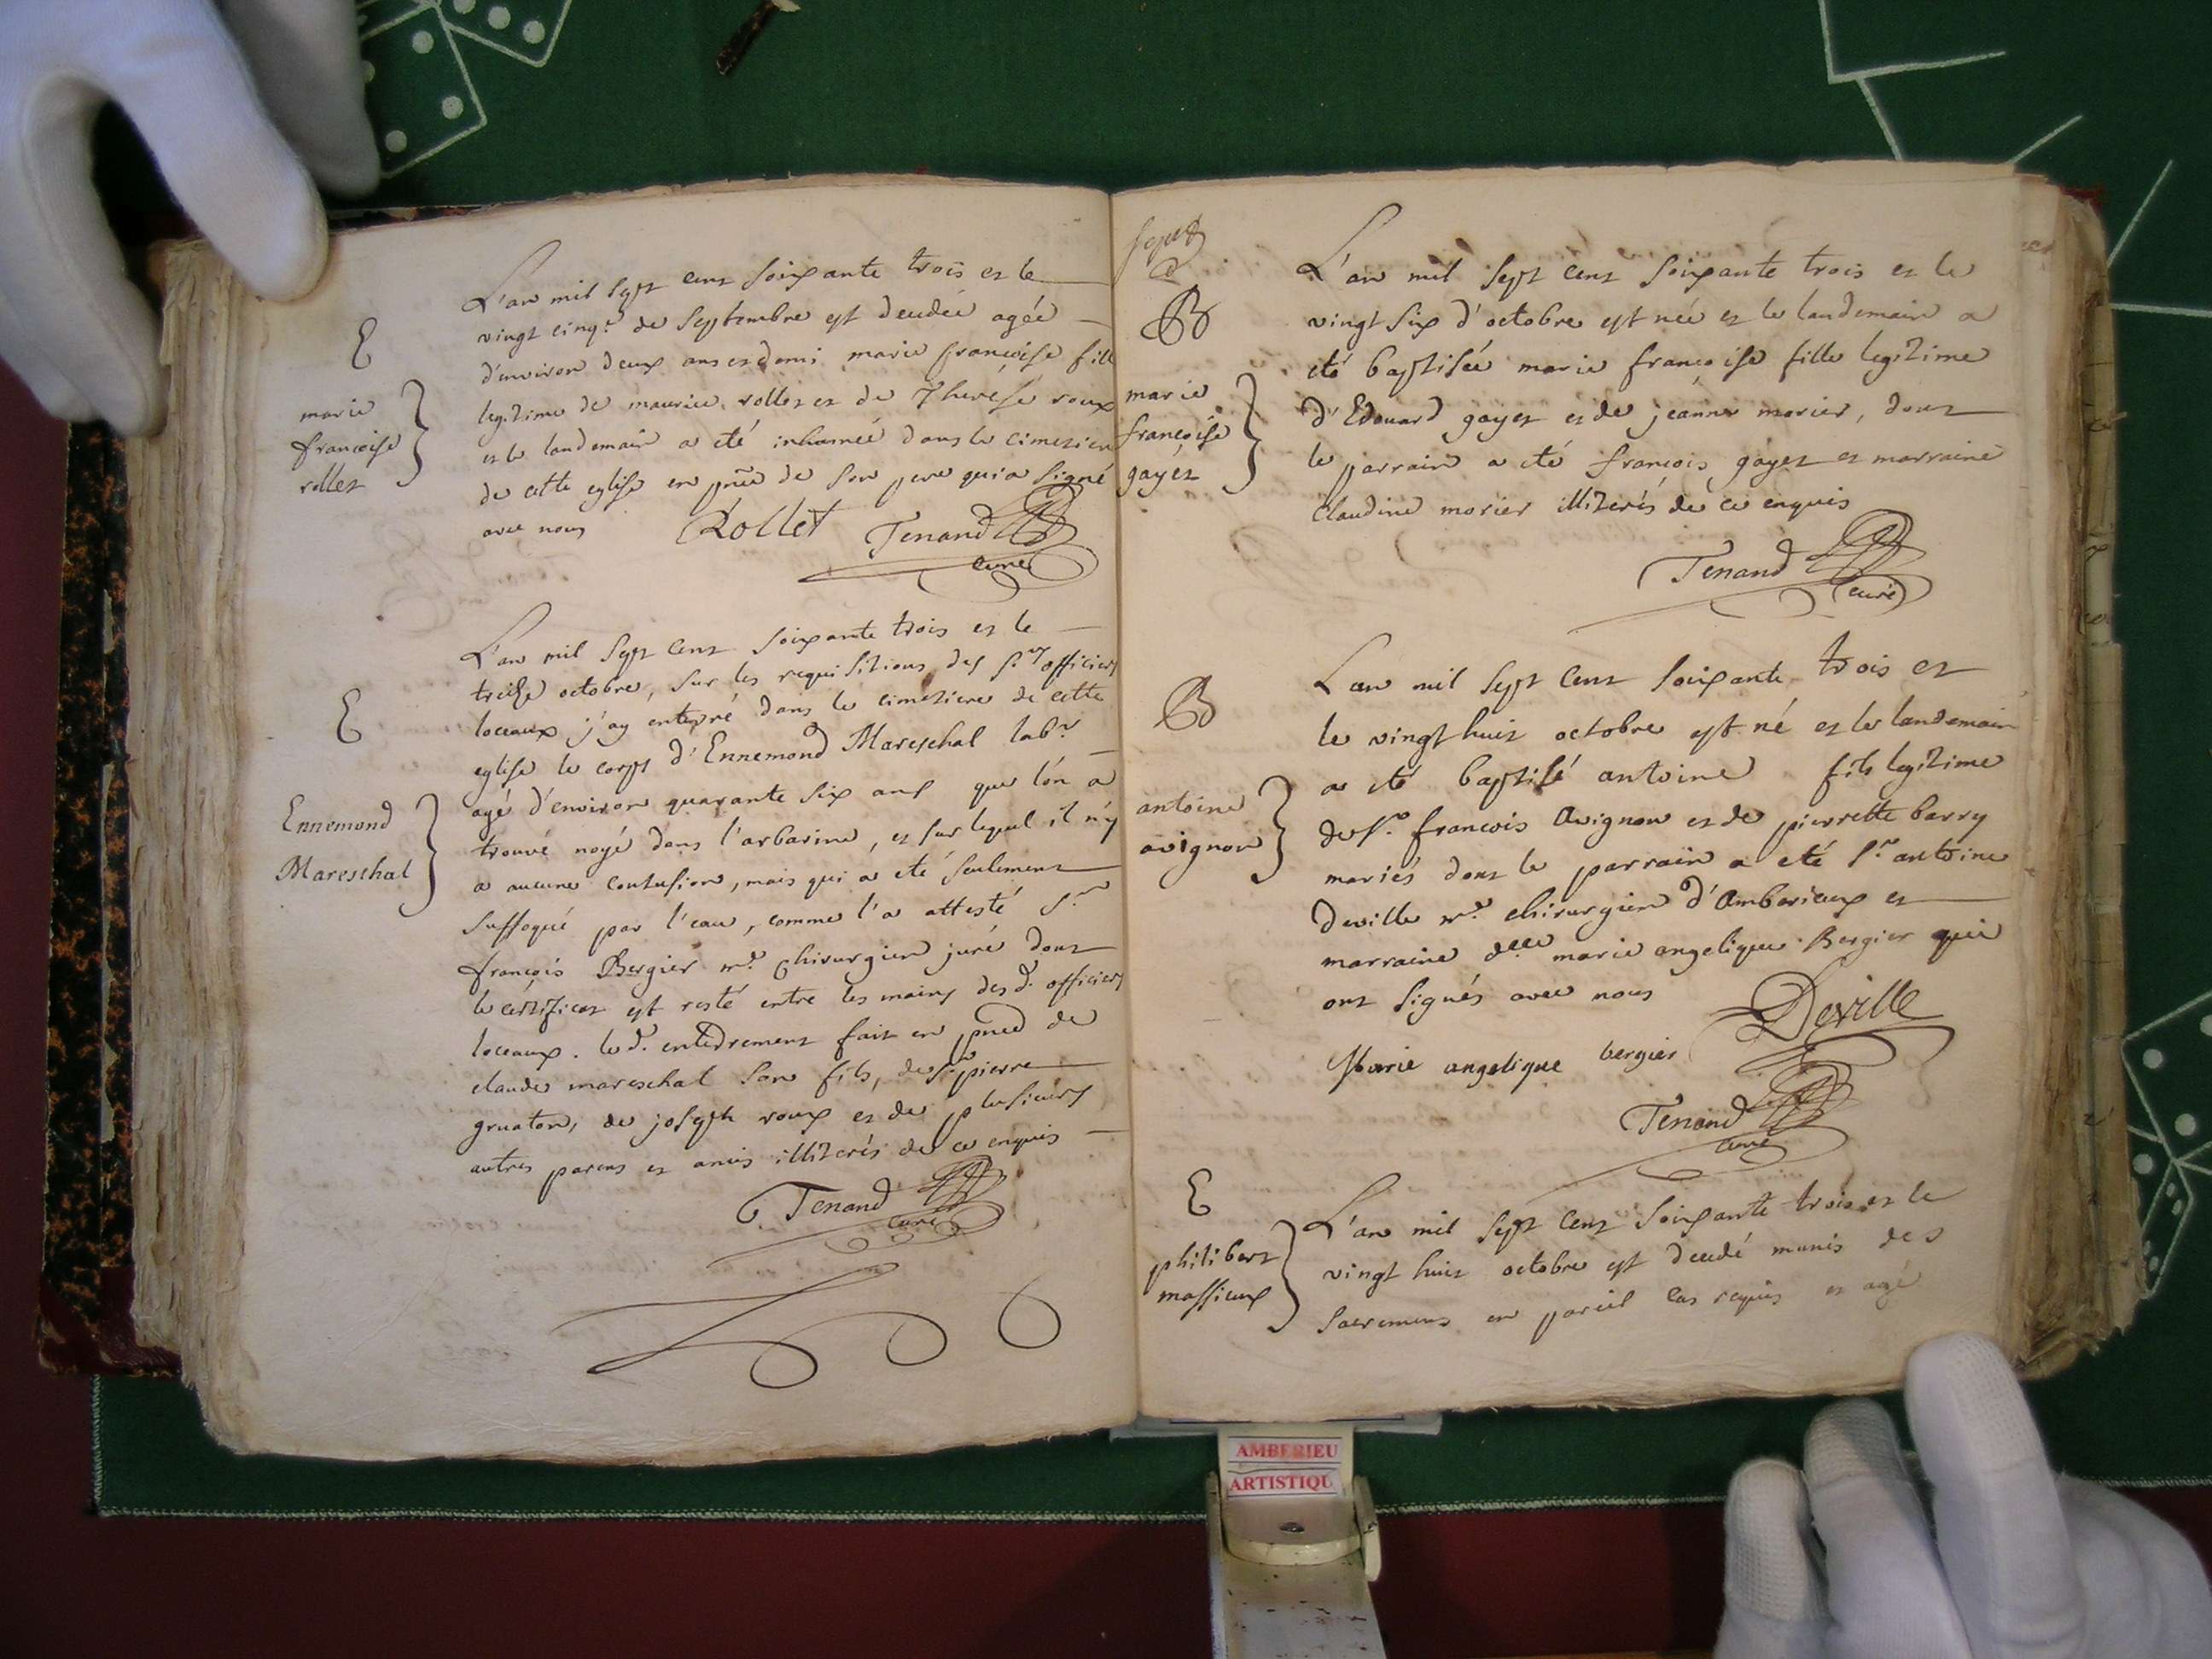 E
marie
françoise
rollet
L'an mil sept cent soixante trois et le
vingt cinq.e de septembre est decedée agée
d'environ deux ans et demi marie françoise fille
legitime de maurice rollet et de Therese roux
et le landemain a eté inhumée dans le cimetiere
de cette eglise en pñce de son pere qui a signé
avec nous
Rollet Tenand
curé
E
Ennemond
Mareschal
L'an mil sept cent soixante trois et le
treize octobre, sur les requisitions des s.rs officiers
locaux j'ay enterré dans le cimetiere de cette
eglise le corps d'Ennemond Mareschal lab.r
agé d'environ quarante six ans que l'on a
trouvé noyé dans l'arbarine, et sur lequel il n'y
a aucune contusion, mais qui a eté seulement
suffoqué par l'eau, comme l'a attesté s.r
françois Bergier m.e chirurgien juré dont
le certificat est resté entre les mains des d. officiers
locaux. le d. enterrement fait en pñce de
claude mareschal son fils, de s.r pierre
gruaton, de joseph roux et de plusieurs
autres parens et amis illiterés de ce enquis
Tenand
curé
B
marie
françoise
gayet
L'an mil sept cent soixante trois et le
vingt six d'octobre est née et le landemain a
eté baptisée marie françoise fille legitime
d'Edouard gayet et de jeanne morier, dont
le parrain a eté françois gayet et marraine
claudine morier illiterés de ce enquis
Tenand
curé
B
antoine
avignon
L'an mil sept cent soixante trois et
le vingt huit octobre est né et le landemain
a eté baptisé antoine fils legitime
de s.r françois Avignon et de pierrette barry
mariés dont le parrain a eté s.r antoine
Deville m.e chirurgien d'Amberieux et
marraine d.elle marie angelique Bergier qui
ont signés avec nous
Deville
Marie angelique bergier
Tenand
curé
E
philibert
massieux
L'an mil sept cent soixante trois et le
vingt huit octobre est decedé munis des
sacremens en pareil cas requis et agé
AMBERIEU
ARTISTIQU